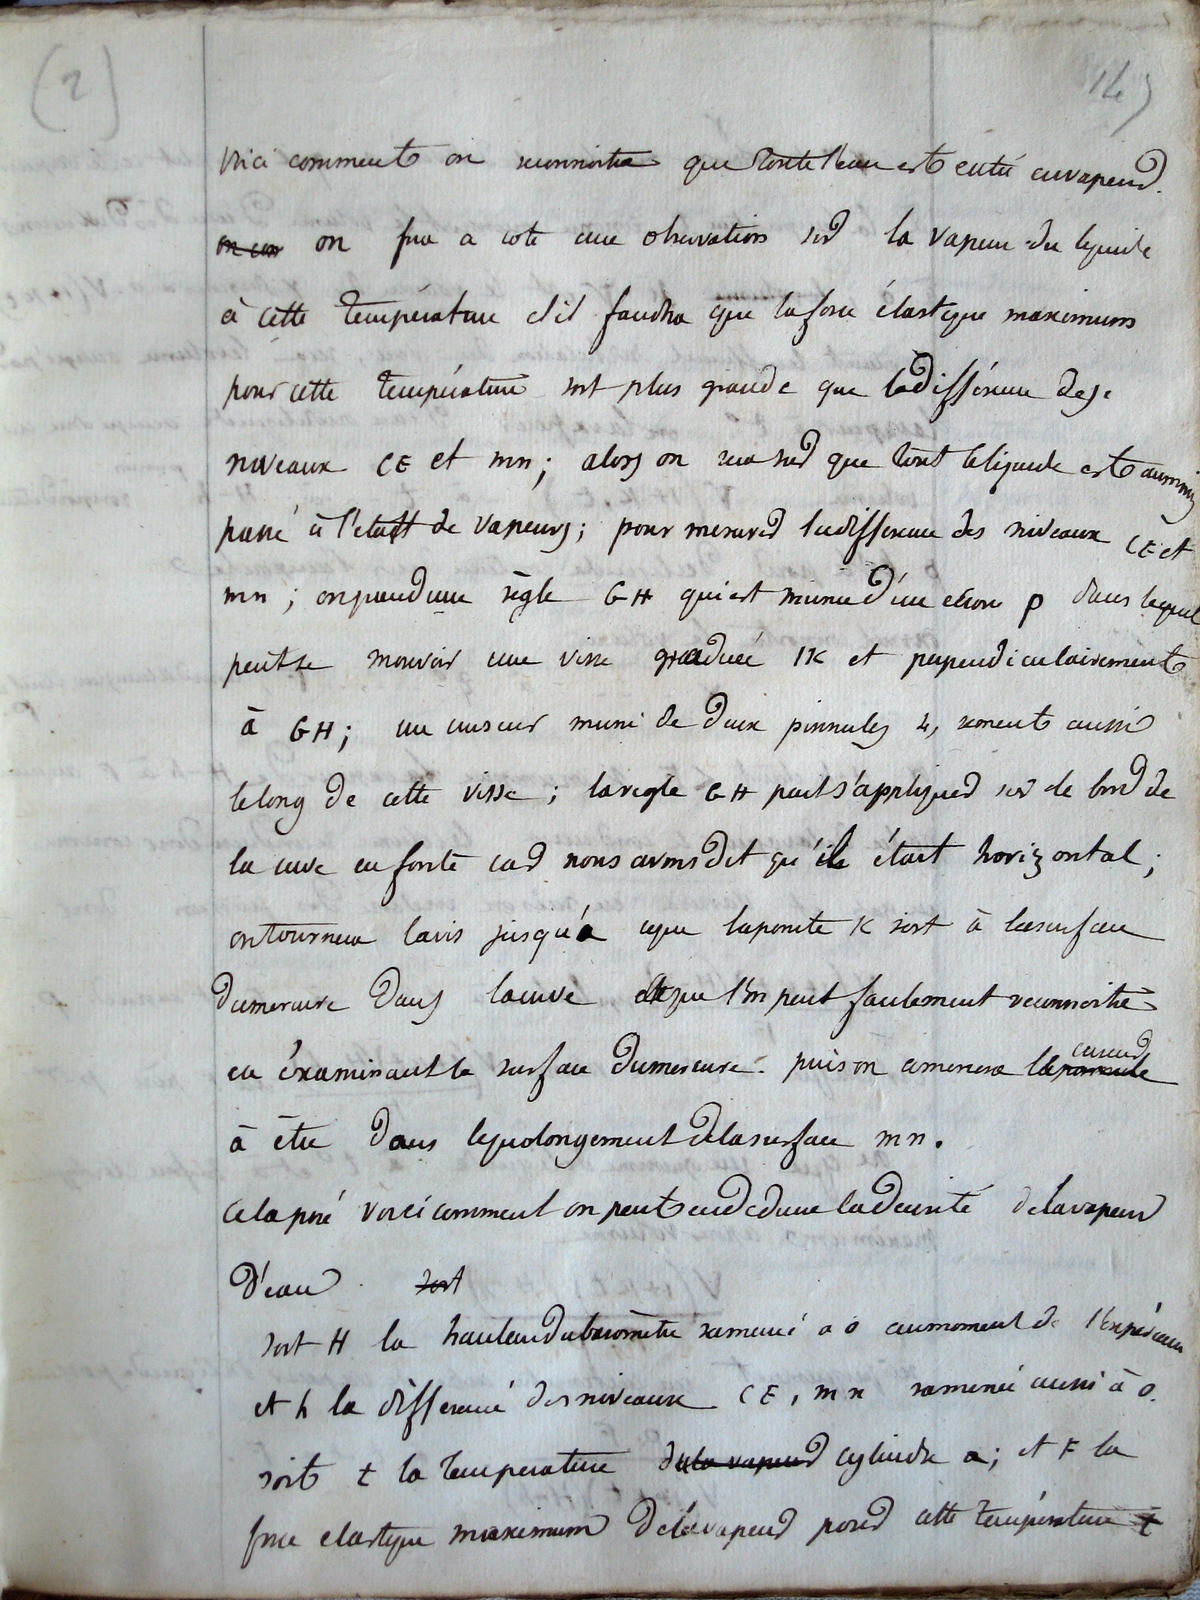 (2)
145
Voici comment on reconnoitra que toute l'eau est entré en vapeur.
on con on fera a coté une observation sur la vapeur du liquide
à cette température et il faudra que la force élastique maximum
pour cette température soit plus grande que la différence des
niveaux CE et mn; alors on sera sur que tout le liquide est aumoins
passé à l'etat de vapeurs; pour mesurer la difference des niveaux CE et
mn; on prend une règle GH qui est munie d'un ecrou p dans lequel
peut se mouvoir une visse graduée IK et perpendiculairement
à GH; un curseur muni de deux pinnules se meut aussi
le long de cette visse; la regle GH peut s'appliquer sur le bord de
la cuve en fonte car nous avons dit qu'il étart horizontal;
on tournera la vis jusqu'a ceque la pointe K soit à la surface
du mercure dans la cuve ceque l'on peut facilement reconnoitre
en éxaminant la surface du mercure. puis on amenera la pinnule curseur
à être dans le prolongement de la surface mn.
Cela posé voici comment on peut en deduire la densité de la vapeur
d'eau. soit
soit H la hauteur du baromètre ramené a o au moment de l'expérience
et h la différence des niveaux CE, mn ramenée aussi à o.
soit t la température de la vapeur cylindre a; et F la
force elastique maximum de la vapeur pour cette température t